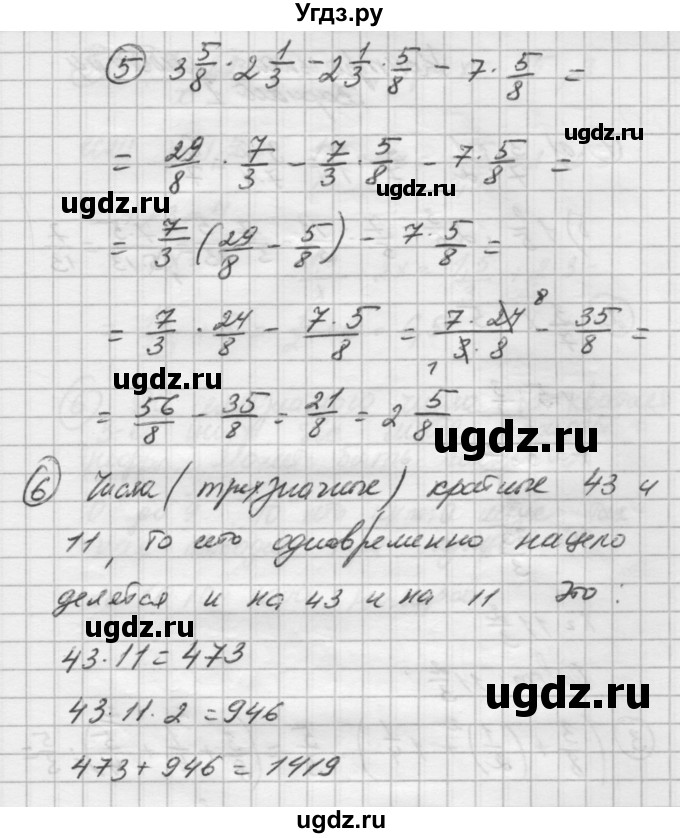 Угдз.ру
⑤ 3 5/8 · 2 1/3 − 2 1/3 · 5/8 − 7 · 5/8 =
ugdz.ru
= 29/8 · 7/3 − 7/3 · 5/8 − 7 · 5/8 =
ugdz.ru ugdz.ru
= 7/3 (29/8 − 5/8) − 7·5/8 =
= 7/3 · 24/8 − 7·5/8 = 7·24 8/3·8 1 − 35/8 =
ugdz.ru
= 56/8 − 35/8 = 21/8 = 2 5/8
ugdz.ru
⑥ Числа (трехзначные) кратные 43 и
11, то есть одновременно нацело
делятся и на 43 и на 11 Это:
ugdz.ru
43·11=473
ugdz.ru
43·11·2 =946
473+946=1419
ugdz.ru
ugdz.ru